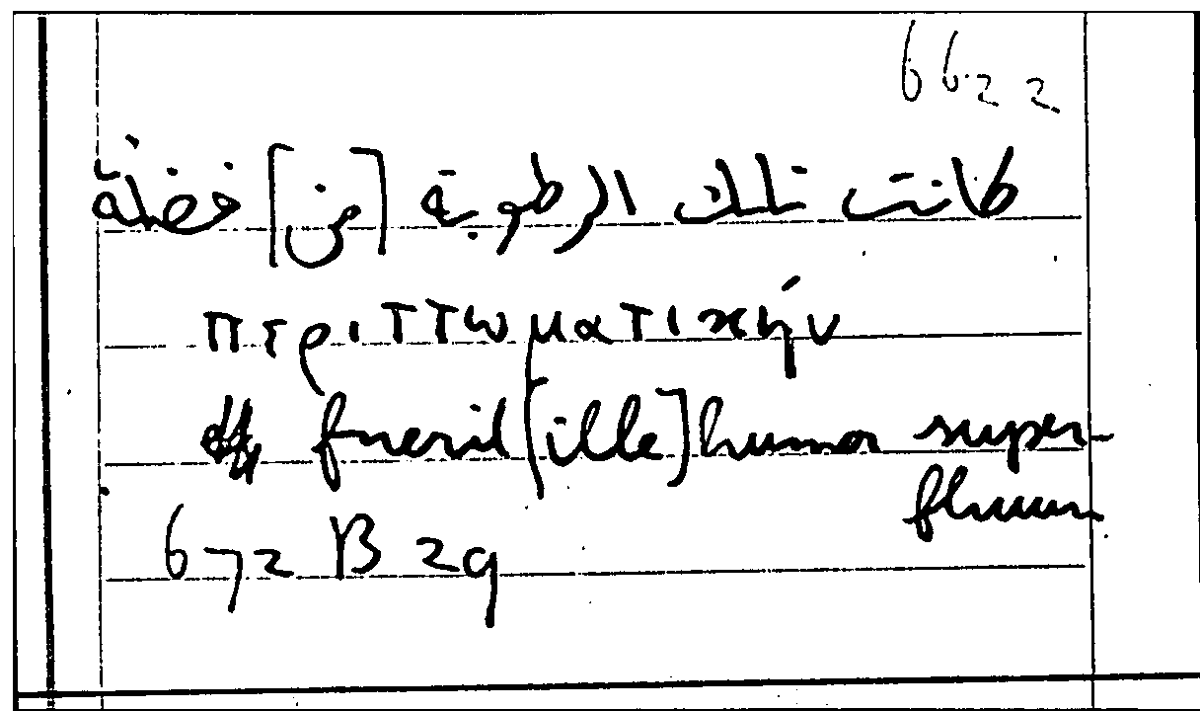 6622
كانت تلك الرطوبة [من] فضلة
περιττωματικήν
fuerit [ille] humor super-
fluus
672 B 29